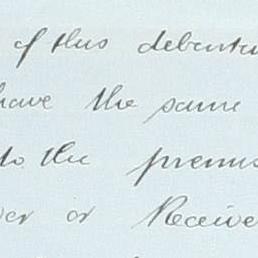 of this debentu
have the same
to the premis
ver or Receive